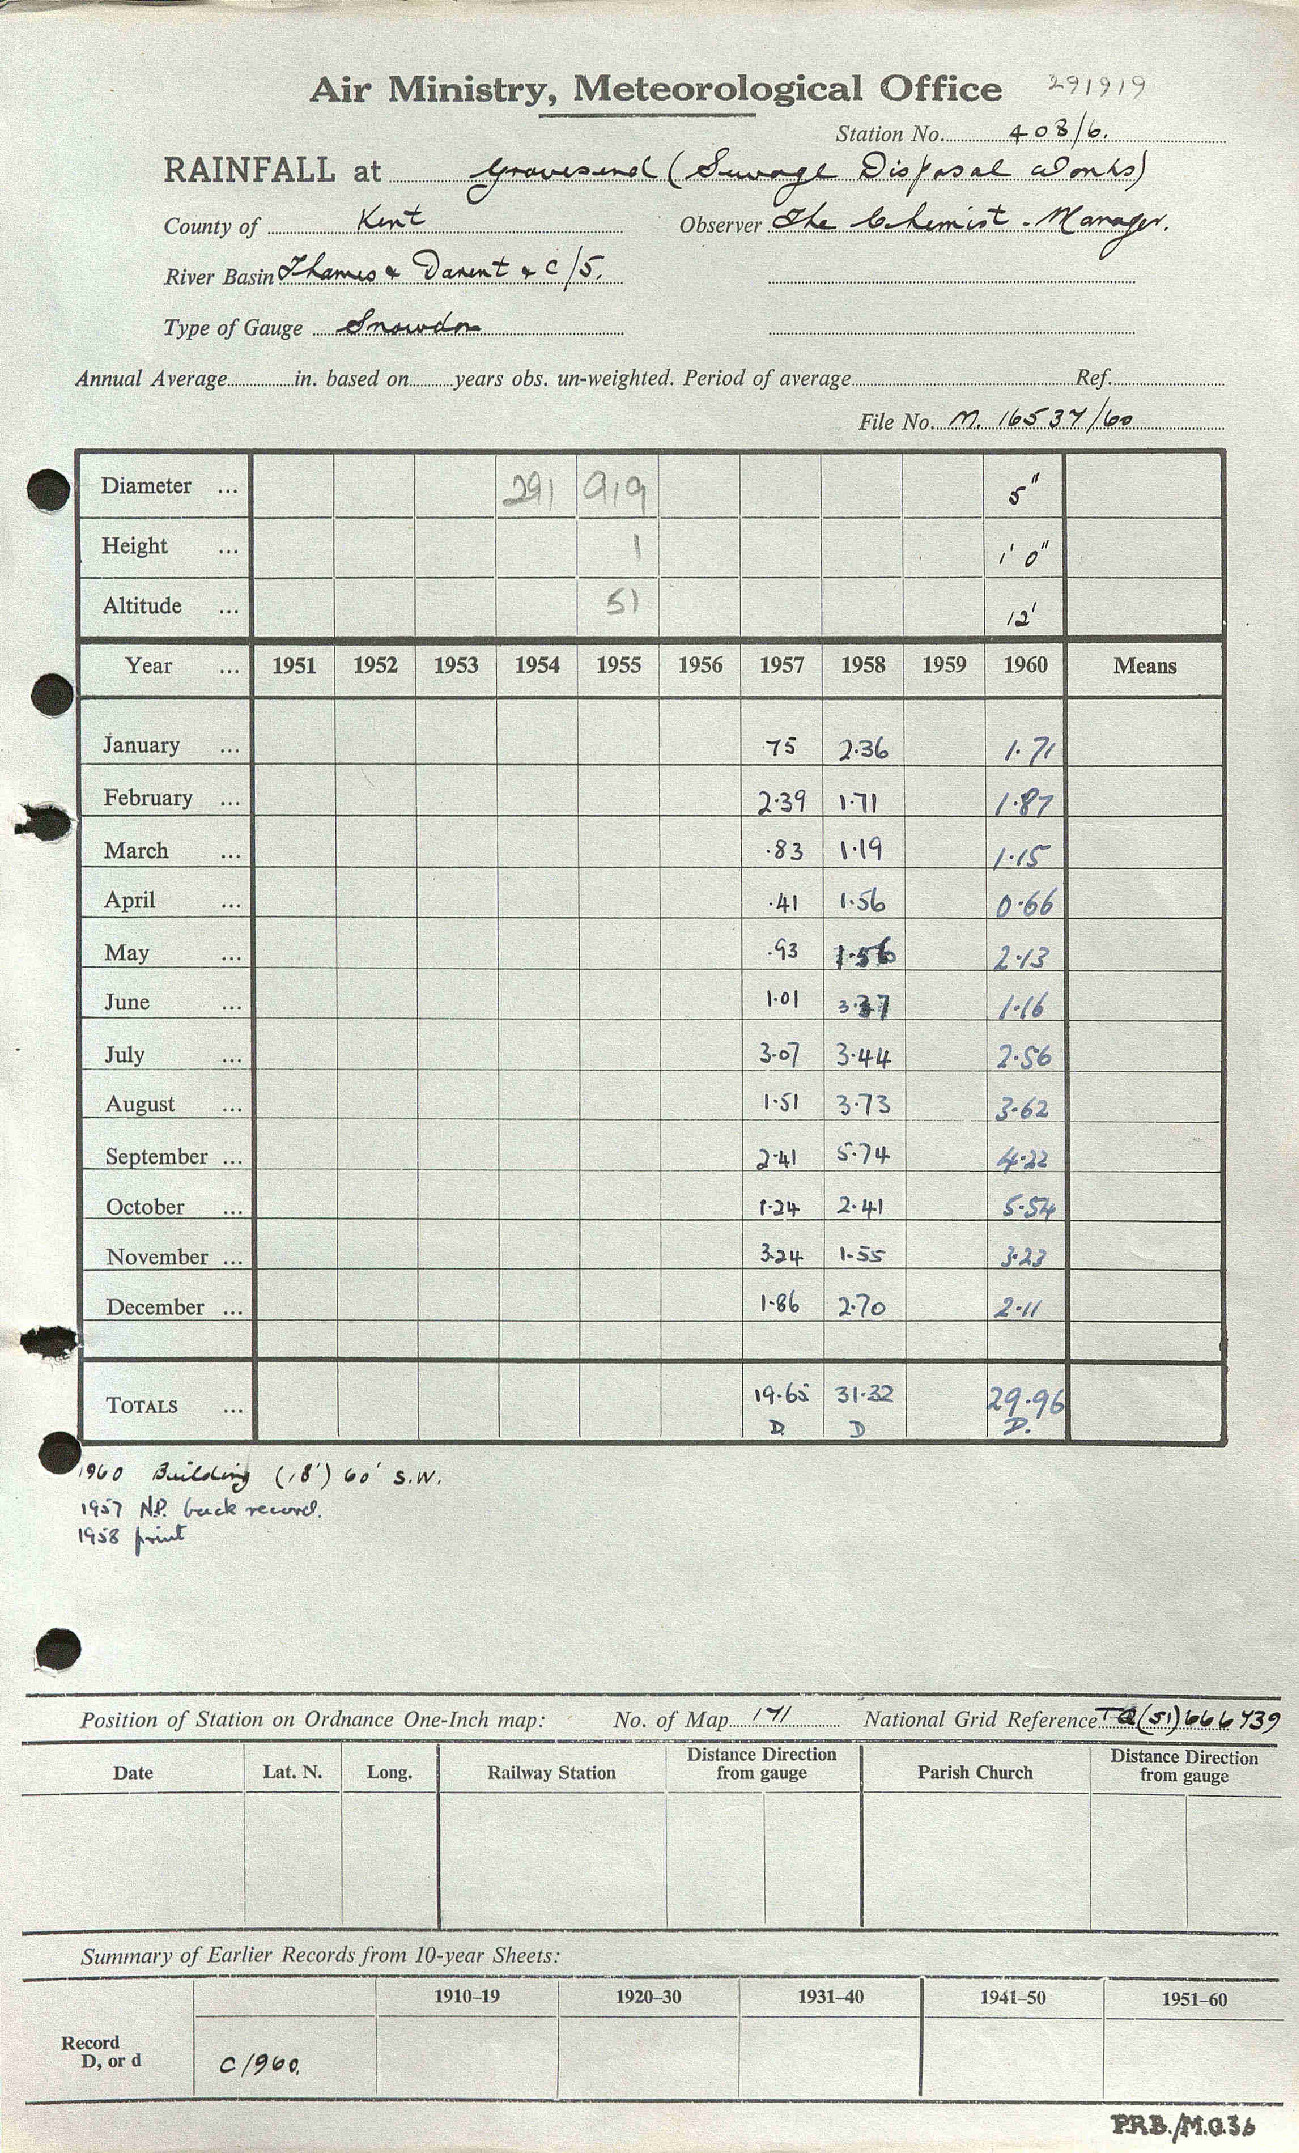 Air Ministry, Meteorological Office 291919
Station No. 408/6.
RAINFALL at Gravesend (Sewage Disposal Works)
County of Kent Observer The Chemist-Manager.
River Basin Thames & Darent & C/5.
Type of Gauge Snowdon
Annual Average in. based on years obs. un-weighted. Period of average Ref.
File No. M. 16537/60
Diameter ... 291 919 5"
Height ... 1 1' 0"
Altitude ... 51 12'
Year ... 1951 1952 1953 1954 1955 1956 1957 1958 1959 1960 Means
January ... 75 2.36 1.71
February ... 2.39 1.71 1.87
March ... .83 1.19 1.15
April ... .41 1.56 0.66
May ... .93 1.56 2.13
June ... 1.01 3.37 1.16
July ... 3.07 3.44 2.56
August ... 1.51 3.73 3.62
September ... 2.41 5.74 4.22
October ... 1.24 2.41 5.54
November ... 3.24 1.55 3.23
December ... 1.86 2.70 2.11
TOTALS ... 19.65 31.32 29.96
D D D.
1960 Building (18') 60' S.W.
1957 N.P. back record.
1958 print
Position of Station on Ordnance One-Inch map: No. of Map 171 National Grid Reference TQ(51)666739
Date Lat. N. Long. Railway Station Distance Direction from gauge Parish Church Distance Direction from gauge
Summary of Earlier Records from 10-year Sheets:
1910–19 1920–30 1931–40 1941–50 1951–60
Record
D, or d C1960.
P.R.B./M.O.36